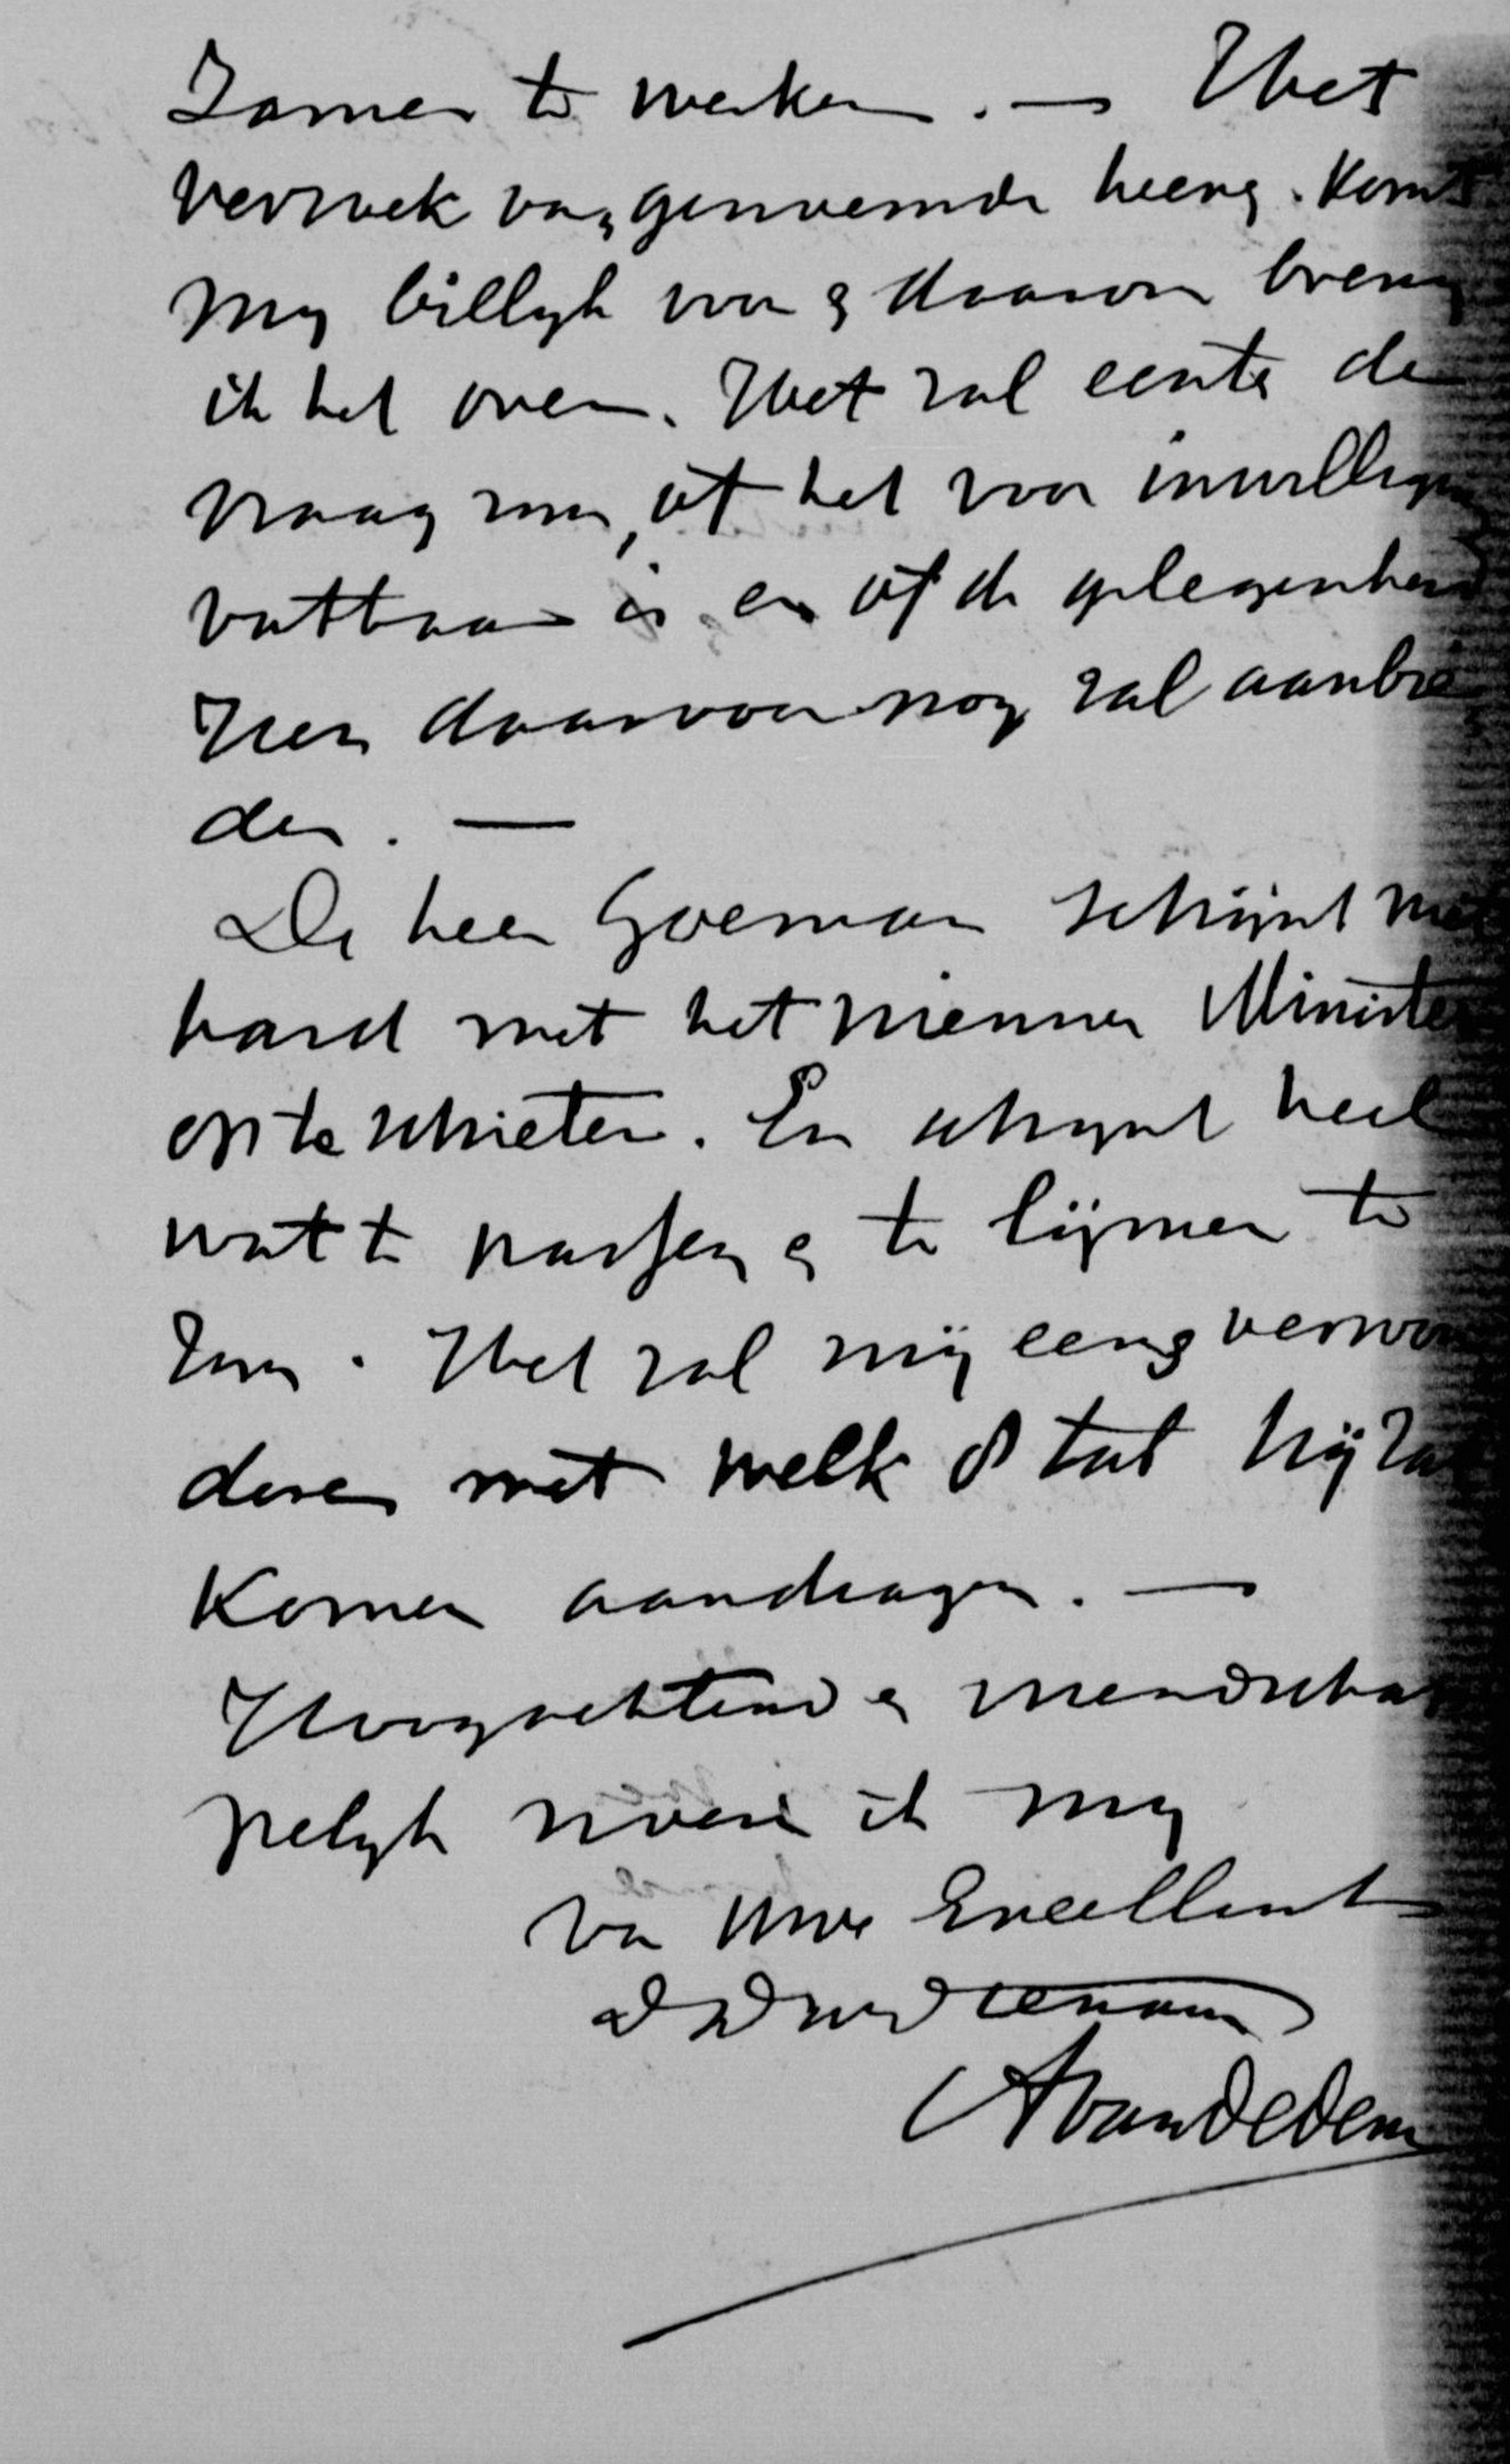 Zamen te werken. — Het
verzoek van genoemde heeren. Komt
my billyk voor & daarom breng
ik het over. Het zal echter de
vraag zyn, of het voor inwilliging
vatbaar is en of de gelegenheid
zich daarvoor nog zal aanbie
den. —
De heer Goeman schijnt niet
hard met het nieuwe Ministerie
op te schieten. Er schynt heel
wat te passen & te lijmen te
zyn. Het zal mij eens verwon
deren met welk stel hij zal
komen aandragen. —
Hoogachtend & vriendschap
pelyk noem ik my
van Uwe Excellentie
d dw dienaar
AvanDedem